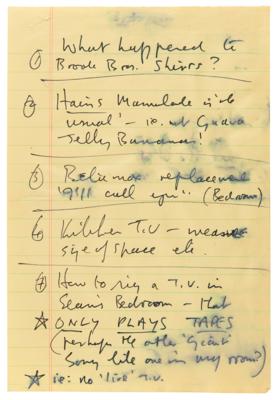 ① What happened to
Brooks Bros. Shirts?
② Hains Mamulade is 'the
usual' - ie. not Guava
Jelly Bananas!
③ replaced
"I'll call you" (Bedroom)
⑥ Kitchen T.V - measure
size of space etc.
⑦ How to rig a T.V. in
Sean's Bedroom - that
☆ ONLY PLAYS TAPES
(perhaps the other 'Giant'
Sony like one in my room?)
☆ ie: no 'live' T.V.